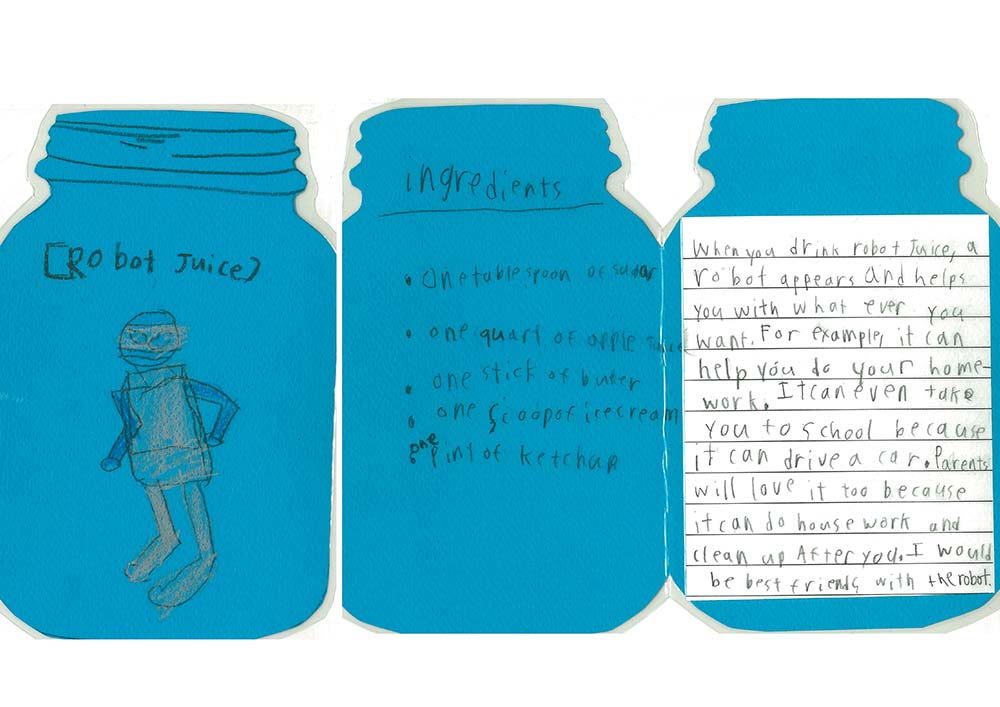 [Robot Juice]
ingredients
• One tablespoon of sugar
• one quart of apple juice
• one stick of butter
• one scoop of icecream
• one pint of ketchup
When you drink robot Juice, a
robot appears and helps
you with what ever you
want. For example, it can
help you do your home-
work. It can even take
you to school because
it can drive a car. Parents
will love it too because
it can do house work and
clean up After you. I would
be best friends with the robot.